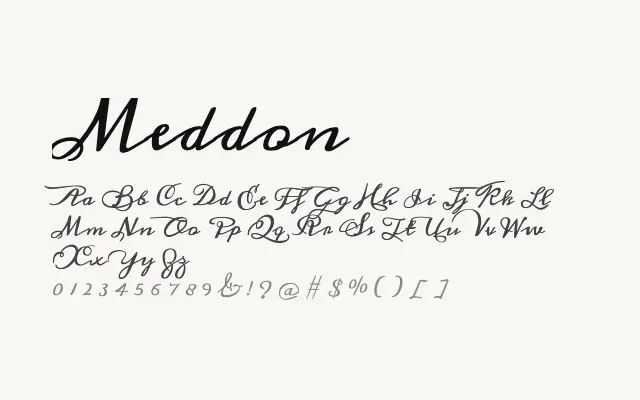 Meddon
Aa Bb Cc Dd Ee Ff Gg Hh Ii Jj Kk Ll
Mm Nn Oo Pp Qq Rr Ss Tt Uu Vv Ww
Xx Yy Zz
0 1 2 3 4 5 6 7 8 9 & ! ? @ # $ % ( ) [ ]